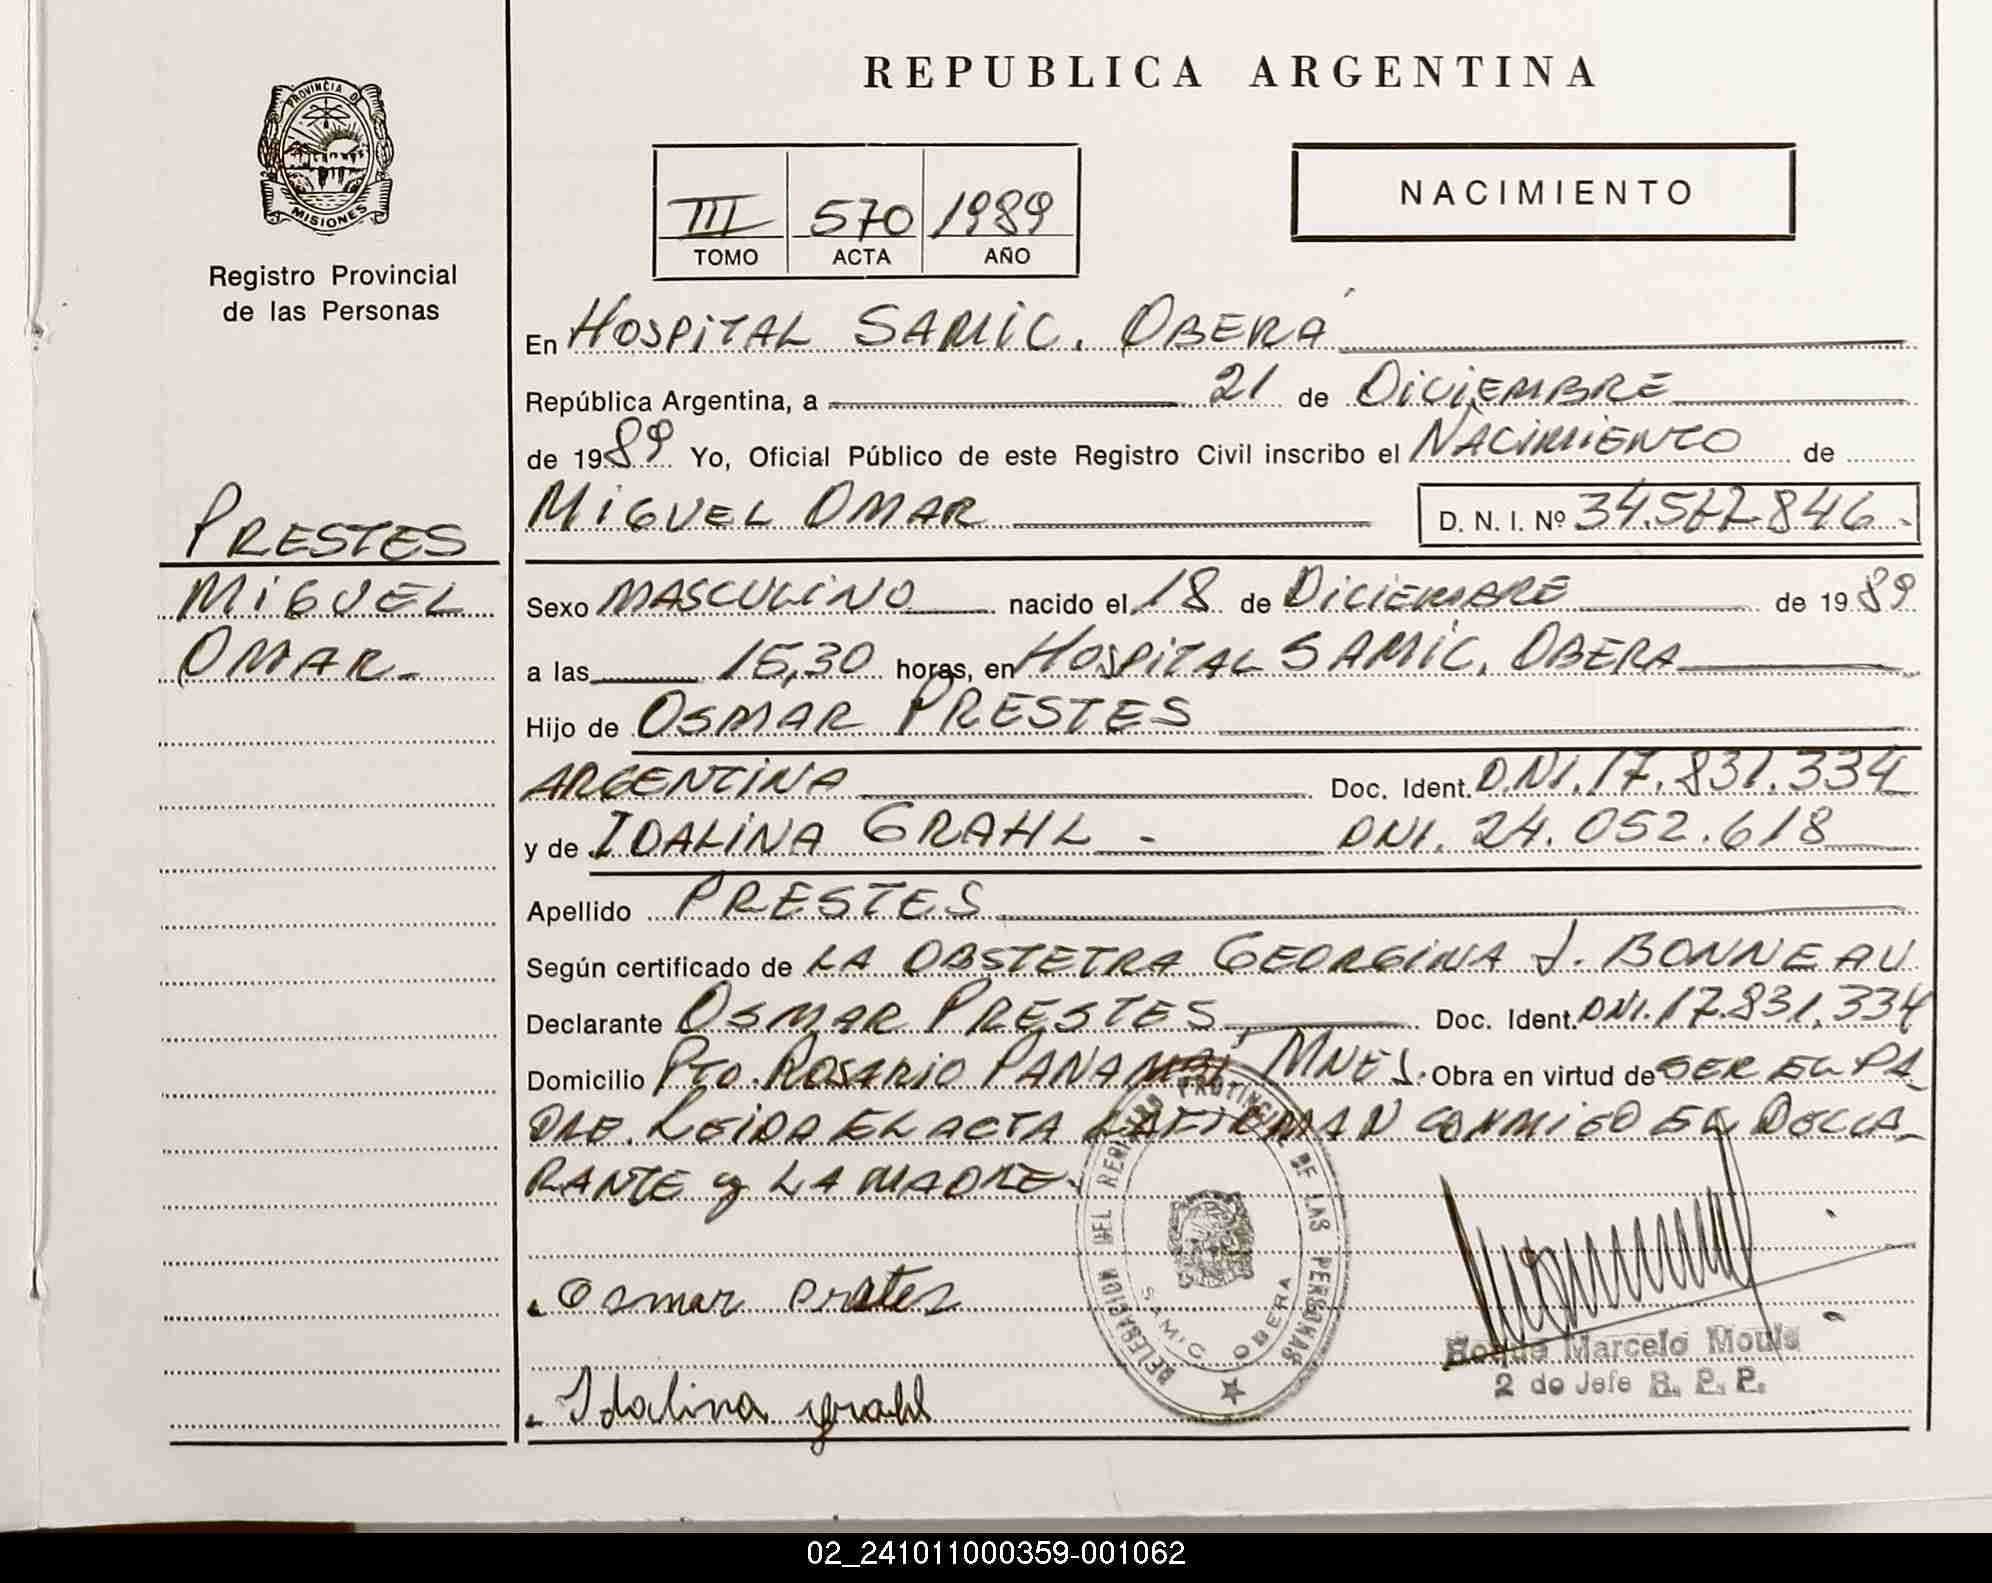 PROVINCIA DE
MISIONES
Registro Provincial
de las Personas
PRESTES
MIGUEL
OMAR.
REPUBLICA ARGENTINA
III 570 1989
TOMO ACTA AÑO
NACIMIENTO
En HOSPITAL SAMIC. OBERÁ
República Argentina, a 21 de DICIEMBRE
de 1989 Yo, Oficial Público de este Registro Civil inscribo el NACIMIENTO de
MIGUEL OMAR D. N. I. Nº 34.5 2 846.
Sexo MASCULINO nacido el 18 de DICIEMBRE de 1989
a las 15,30 horas, en HOSPITAL SAMIC, OBERA
Hijo de OSMAR PRESTES
ARGENTINA Doc. Ident. DNI. 17.831.334
y de IDALINA GRAHL - DNI. 24.052.618
Apellido PRESTES
Según certificado de LA OBSTETRA GEORGINA J. BONNEAU
Declarante OSMAR PRESTES Doc. Ident. DNI. 17.831.334
Domicilio Pto. ROSARIO PANAMBÍ, MNES. Obra en virtud de SER EL PA-
DRE. LEIDA EL ACTA LA FIRMAN CONMIGO EL DECLA-
RANTE y LA MADRE.
DELEGACION DEL REGISTRO PROVINCIAL DE LAS PERSONAS
SAMIC OBERA
. Osmar Prestes
. Idalina grahl
Roque Marcelo
2 do Jefe R. P. P.
02_241011000359-001062